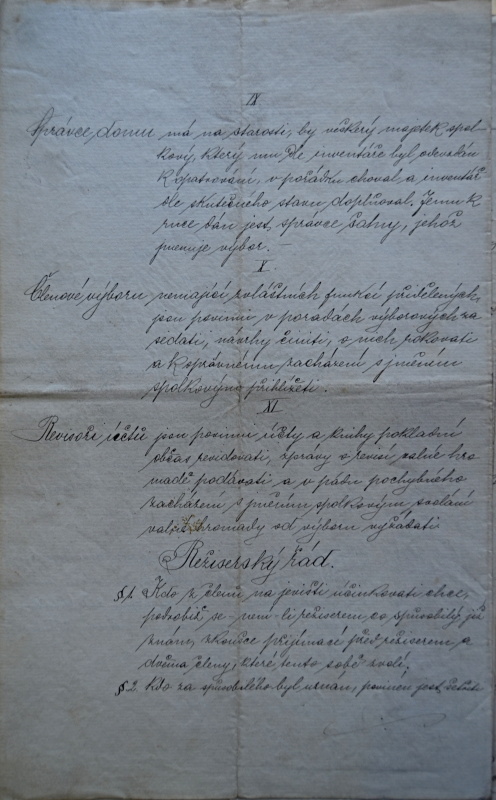 IX
Správce domu má na starosti, by veškerý majetek spol-
kový, který mu dle inventáře byl odevzdán
k opatrování, v pořádku choval a inventář
dle skutečného stavu doplňoval. Jemu k
ruce dán jest správce šatny, jehož
jmenuje výbor. –
X
Členové výboru nemající zvláštních funkcí přidělených,
jsou povinni v poradách výborových za
sedati, návrhy činiti, o nich rokovati
a k správnému zacházení s jměním
spolkovým přihlížeti.
XI.
Revisoři účtů jsou povinni účty a knihy pokladní
občas revidovati, zprávy o revisi valné hro
madě podávati a v pádu pochybného
zacházení s jměním spolkovým svolání
valné hromady od výboru vyžádati
Režiserský řád.
§ 1. Kdo z členů na jevišti účinkovati chce,
podrobiž se není-li režiserem co způsobilý již
znám, zkoušce přijímací před režiserem a
dvěma členy, které tento sobě zvolí.
§ 2. Kdo za způsobilého byl uznán, povinen jest